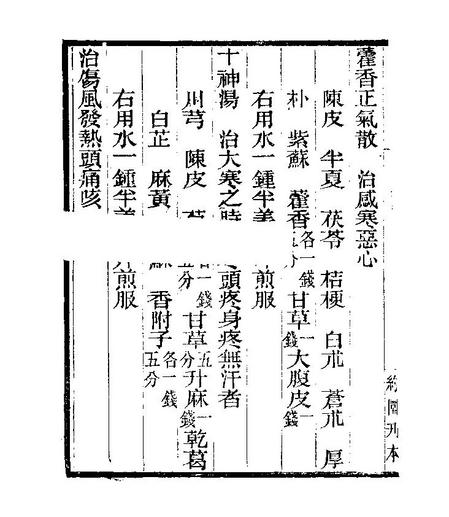 藿香正氣散　治感寒惡心
陳皮　半夏　茯苓　桔梗　白朮　蒼朮　厚
朴　紫蘇　藿香各一錢五分甘草一錢大腹皮一錢
右用水一鍾半　煎服
十神湯　治大寒之時　頭疼身疼無汗者
川芎　陳皮　一錢五分甘草五分升麻一錢乾葛
白芷　麻黃　香附子各一錢五分
右用水一鍾半　煎服
治傷風發熱頭痛咳
約園刊本